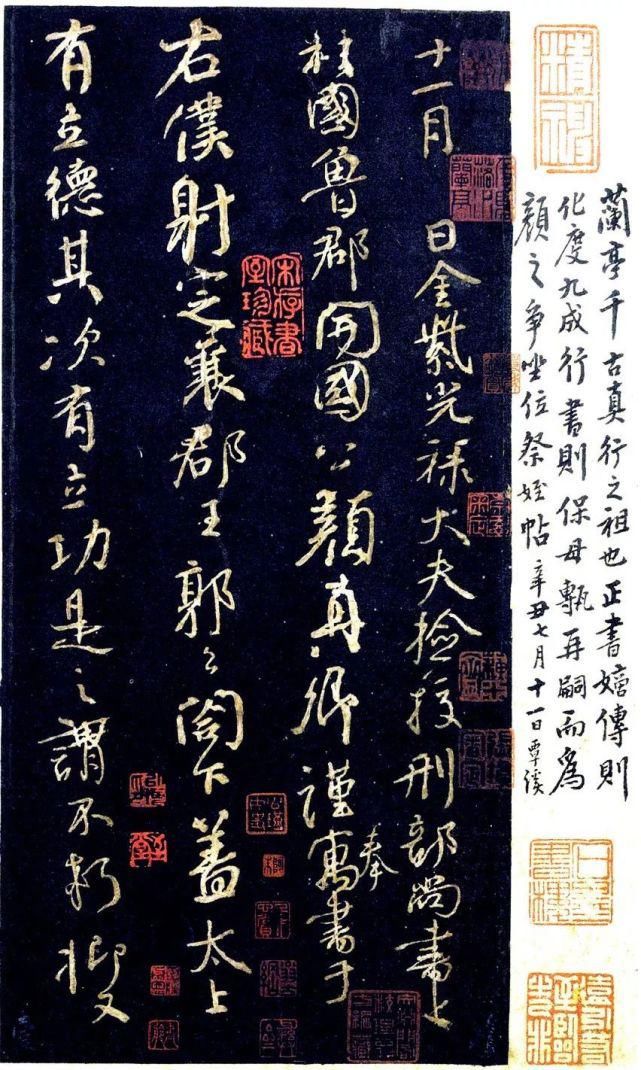 蘭亭千古真行之祖也正書嫡傳則
化度九成行書則保母甎再嗣而爲
顏之爭坐位祭姪帖 辛丑七月十一日覃溪
十一月 日金紫光祿大夫檢校刑部尚書上
柱國魯郡開國公顏真卿謹奉寓書于
右僕射定襄郡王郭公閣下蓋太上
有立德其次有立功是之謂不朽抑又
宋存書室珍藏